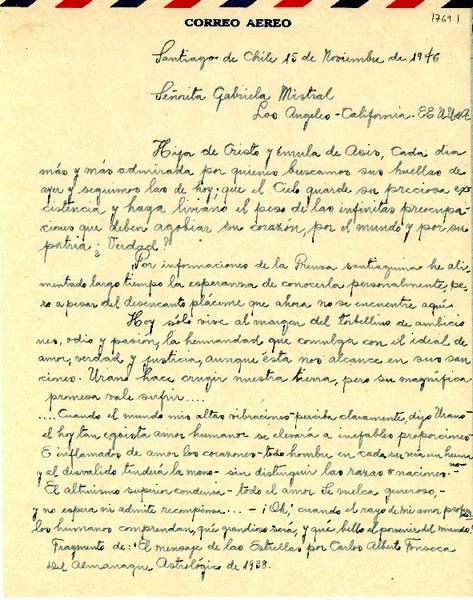 CORREO AEREO
1769 |
Santiago de Chile 15 de Noviembre de 1946
Señorita Gabriela Mistral
Los Angeles - California - EE UU. A
Hija de Cristo y émula de Asis, cada dia
más y más admirada por quienes buscamos sus huellas de
ayer y seguimos las de hoy; que el Cielo guarde su preciosa exs
cistencia y haga liviano el peso de las infinitas preocupa-
ciones que deben agobiar su corazón, por el mundo y por su
patria ¿ Verdad?
Por informaciones de la Prensa santiaguina he ali-
mentado largo tiempo la esperanza de conocerla personalmente, pe-
ro a pesar del desencanto pláceme que ahora no se encuentre aquí
Hoy sólo vive al margen del torbellino de ambicio
nes, odio y pasión, la hermandad que comulga con el ideal de
amor, verdad y justicia, aunque ésta nos alcance en sus san-
ciones. Urano hace crugir nuestra tierra, pero su magnífica
promesa vale sufrir....
....Cuando el mundo mis altas vibraciones - perciba claramente, dijo Urano-
el hoy tan egoista amor humano - se elevará a inefables proporciones
E inflamados de amor los corazones - todo hombre en cada ser verá un humano
y al desvalido tenderá la mano - sin distinguir las razas o naciones.-
El altruismo superior condensa - todo el amor se vuelca generoso,-
y no espera ni admite recompensa... - ¡Oh! cuando el rayo de mi amor
los humanos comprendan, qué grandioso será, y qué bello el porvenir del mundo!
Fragmento de: "El mensaje de las Estrellas por Carlos Alberto Fonseca
del Almanaque Astrológico de 1938.